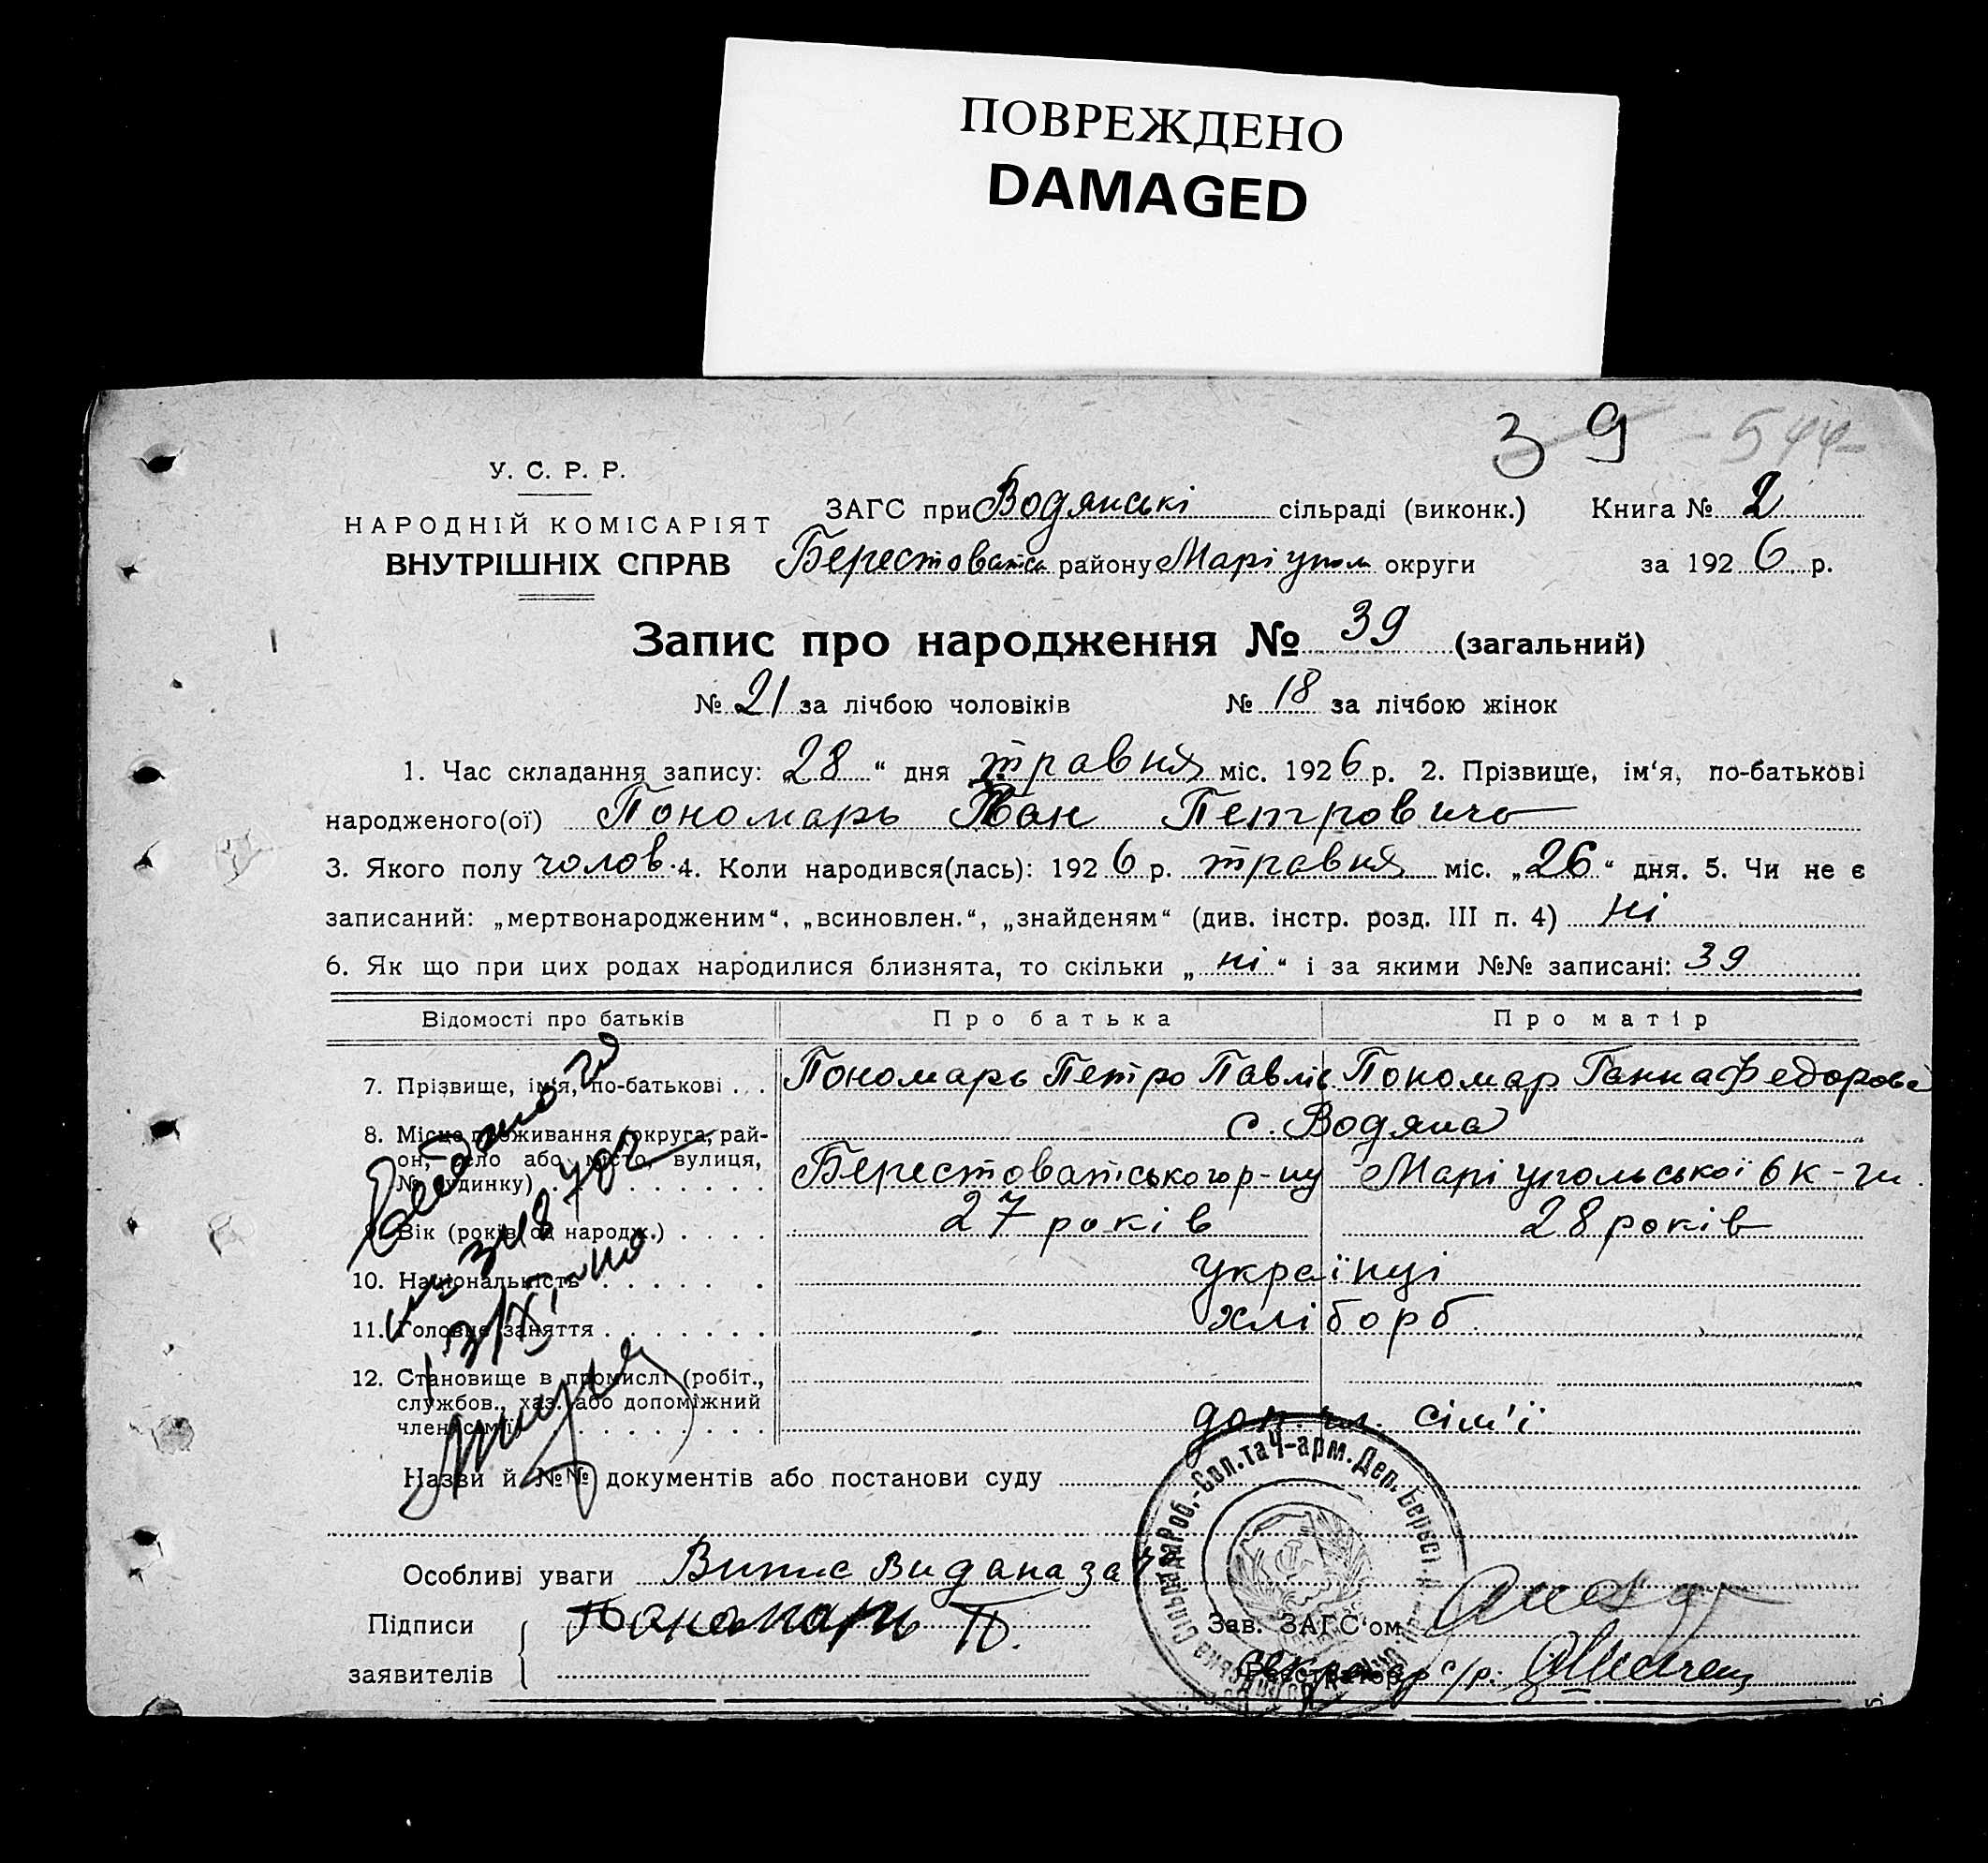 ПОВРЕЖДЕНО
DAMAGED
39 -544-
У. С. Р. Р.
НАРОДНІЙ КОМІСАРІЯТ
ВНУТРІШНІХ СПРАВ
ЗАГС при Водянські сільраді (виконк.) Книга № 2
Берестоватськ району Маріупол округи за 1926 р.
Запис про народження № 39 (загальний)
№ 21 за лічбою чоловіків № 18 за лічбою жінок
1. Час складання запису: „28“ дня травня міс. 1926 р. 2. Прізвище, ім‘я, по-батькові
народженого(ої) Пономарь Іван Петровичь
3. Якого полу чолов. 4. Коли народився(лась): 1926 р. травня міс. „26“ дня. 5. Чи не є
записаний: „мертвонародженим“, „всиновлен.“, „знайденям“ (див. інстр. розд. III п. 4) ні
6. Як що при цих родах народилися близнята, то скільки „ні“ і за якими №№ записані: 39
Відомості про батьків Про батька Про матір
7. Прізвище, ім‘я, по-батькові . . . Пономарь Петро Павлів Пономар Ганна Федорова
8. Місце проживання (округа, рай-
он, село або місто, вулиця,
№ будинку) . . . . . . .
с. Водяна
Берестоватського р-ну Маріупольської ок-ги
9. Вік (років од народж.) . . . . 27 років 28 років
10. Національність . . . . . . українці
11. Головне заняття . . . . . . . хліборб
12. Становище в промислі (робіт.,
службов., хаз. або допоміжний
член сім‘ї) . . . . . . . . .
доп. чл. сім'ї
Назви й №№ документів або постанови суду
Особливі уваги Випис видана за №
Підписи
заявителів
Пономарь П.
Зав. ЗАГС‘ом
Реєстратор
секретар с/р.
Сільрада Роб.-Сел. та Ч-арм. Деп.